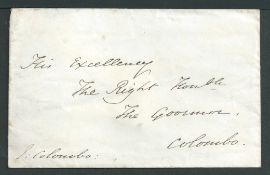 His Excellency
The Right Honble
The Governor,
Colombo.
J. Colombo: